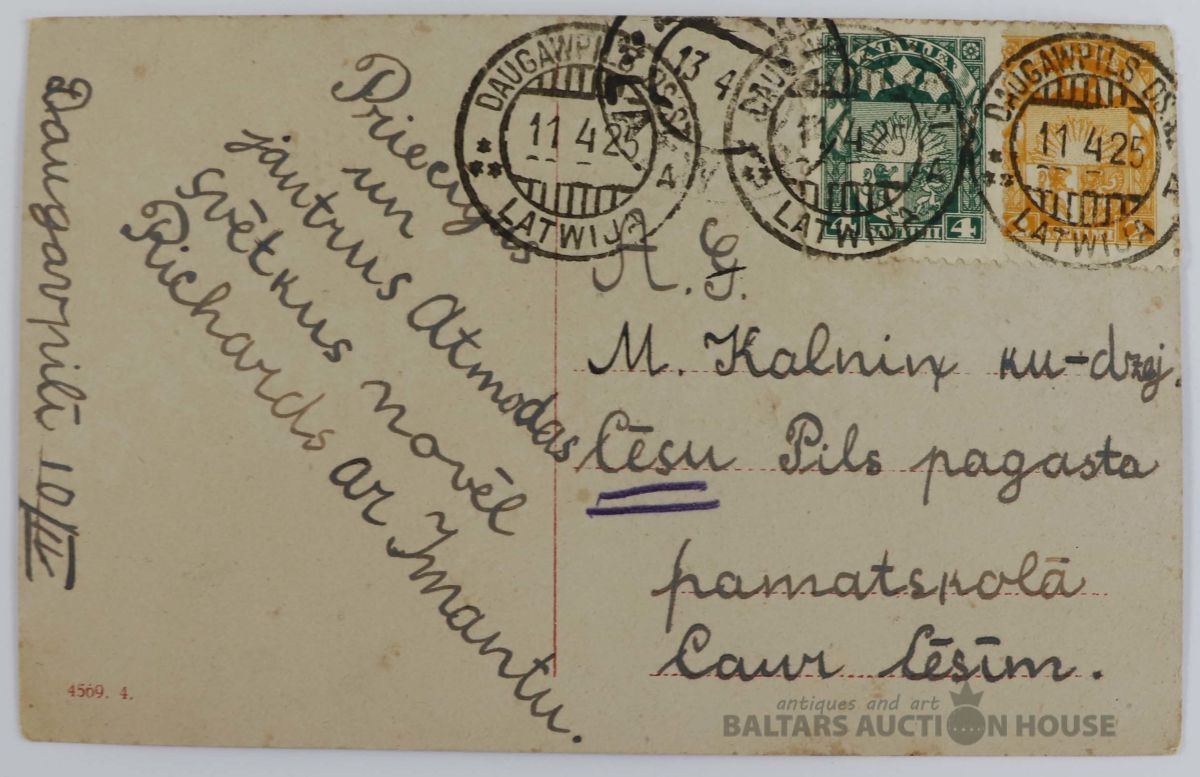 Daugavpilī 10/IV
Priecigus
un
jautrus Atmodas
svētkus novēl
Richards ar Imantu.
A. G.
M. Kalniņ ku-dzej.
Cēsu Pils pagasta
pamatskolā
Caur Cēsīm.
DAUGAWPILS
11.4.25
A
LATWIJA
13 4
11.4.25
LATWIJA
DAUGAWPILS
11.4.25
A
LATWIJA
LATVIJA
4
4569. 4.
antiques and art
BALTARS AUCTION HOUSE